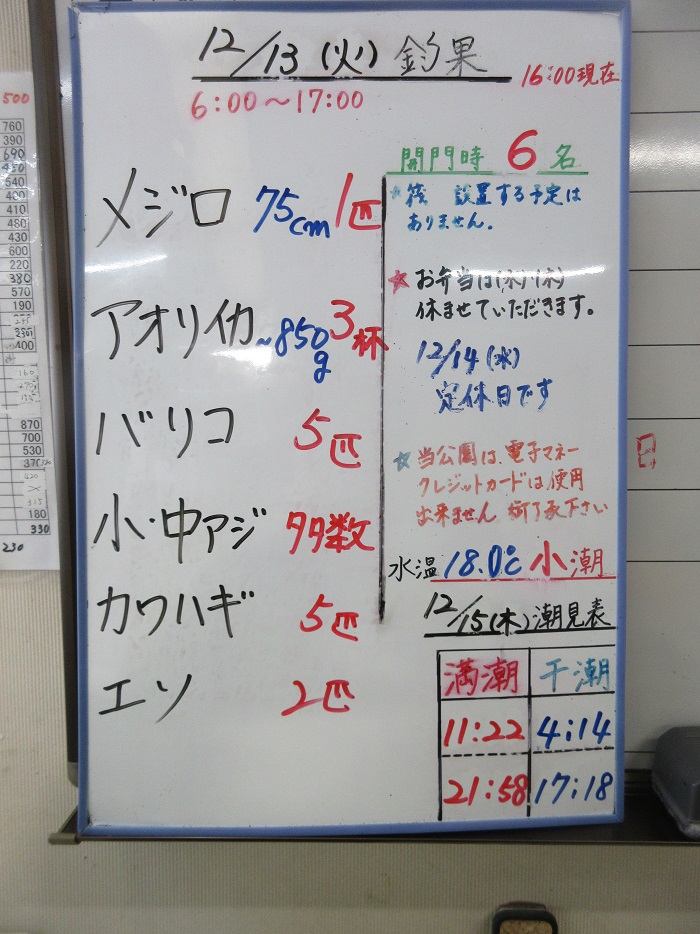 12/13(火)釣果
16:00現在
6:00～17:00
メジロ 75cm 1匹
アオリイカ ~850g 3杯
バリコ 5匹
小・中アジ 多数
カワハギ 5匹
エソ 2匹
開門時 6名
★筏 設置する予定は
ありません。
★お弁当は(水)(木)
休ませていただきます。
12/14(水)
定休日です
☆当公園は、電子マネー
クレジットカードは使用
出来ません 御了承下さい
水温 18.0℃ 小潮
12/15(木)潮見表
満潮 干潮
11:22 4:14
21:58 17:18
500
760
390
690
450
540
400
410
480
430
600
220
380
570
190
400
870
700
530
370
180
330
230